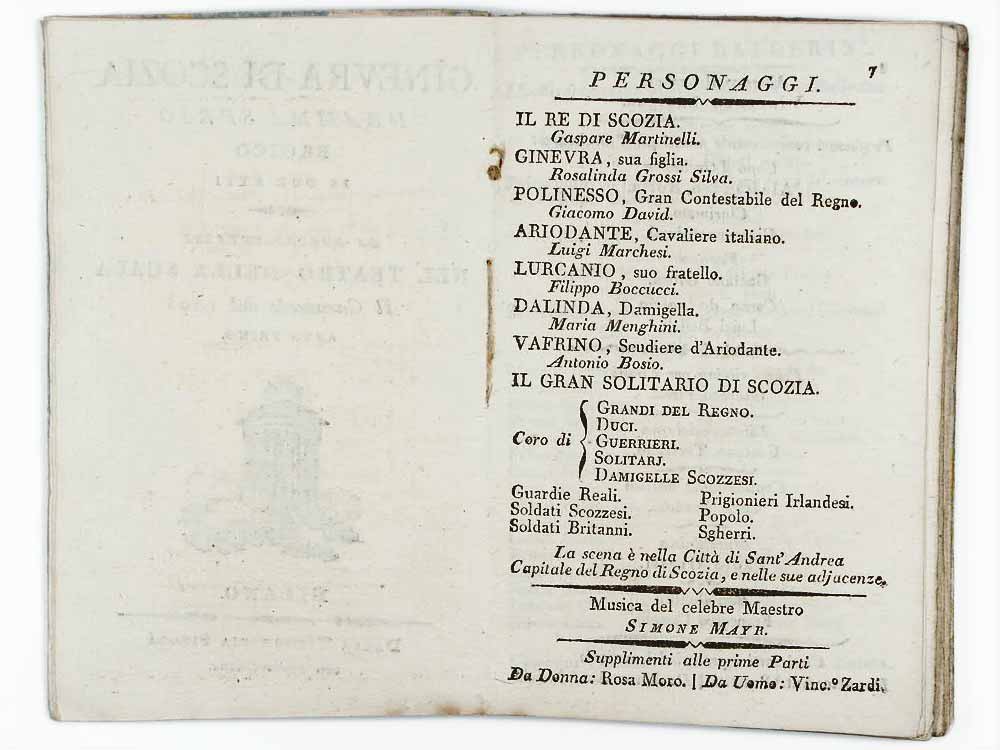 7
PERSONAGGI.
IL RE DI SCOZIA.
Gaspare Martinelli.
GINEVRA, sua figlia.
Rosalinda Grossi Silva.
POLINESSO, Gran Contestabile del Regno.
Giacomo David.
ARIODANTE, Cavaliere italiano.
Luigi Marchesi.
LURCANIO, suo fratello.
Filippo Boccucci.
DALINDA, Damigella.
Maria Menghini.
VAFRINO, Scudiere d'Ariodante.
Antonio Bosio.
IL GRAN SOLITARIO DI SCOZIA.
Coro di
GRANDI DEL REGNO.
DUCI.
GUERRIERI.
SOLITARJ.
DAMIGELLE SCOZZESI.
Guardie Reali. Prigionieri Irlandesi.
Soldati Scozzesi. Popolo.
Soldati Britanni. Sgherri.
La scena è nella Città di Sant'Andrea
Capitale del Regno di Scozia, e nelle sue adjacenze.
Musica del celebre Maestro
SIMONE MAYR.
Supplimenti alle prime Parti
Da Donna: Rosa Moro. | Da Uomo: Vinc.° Zardi.
GINEVRA DI SCOZIA
EROICO
NEL TEATRO DELLA SCALA
MILANO.